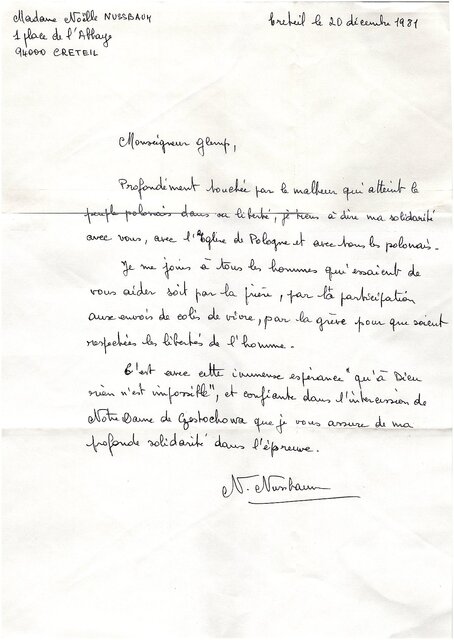 Madame Noëlle NUSSBAUM
1 place de l'Abbaye
94000 CRETEIL
Creteil le 20 décembre 1981
Monseigneur Glemp,
Profondément touchée par le malheur qui atteint le
peuple polonais dans sa liberté, je tiens à dire ma solidarité
avec vous, avec l'Eglise de Pologne et avec tous les polonais.
Je me joins à tous les hommes qui essaient de
vous aider soit par la prière, par la participation
aux envois de colis de vivre, par la grève pour que soient
respectées les libertés de l'homme.
C'est avec cette immense espérance "qu'à Dieu
rien n'est impossible", et confiante dans l'intercession de
Notre Dame de Czestochowa que je vous assure de ma
profonde solidarité dans l'épreuve.
N. Nussbaum